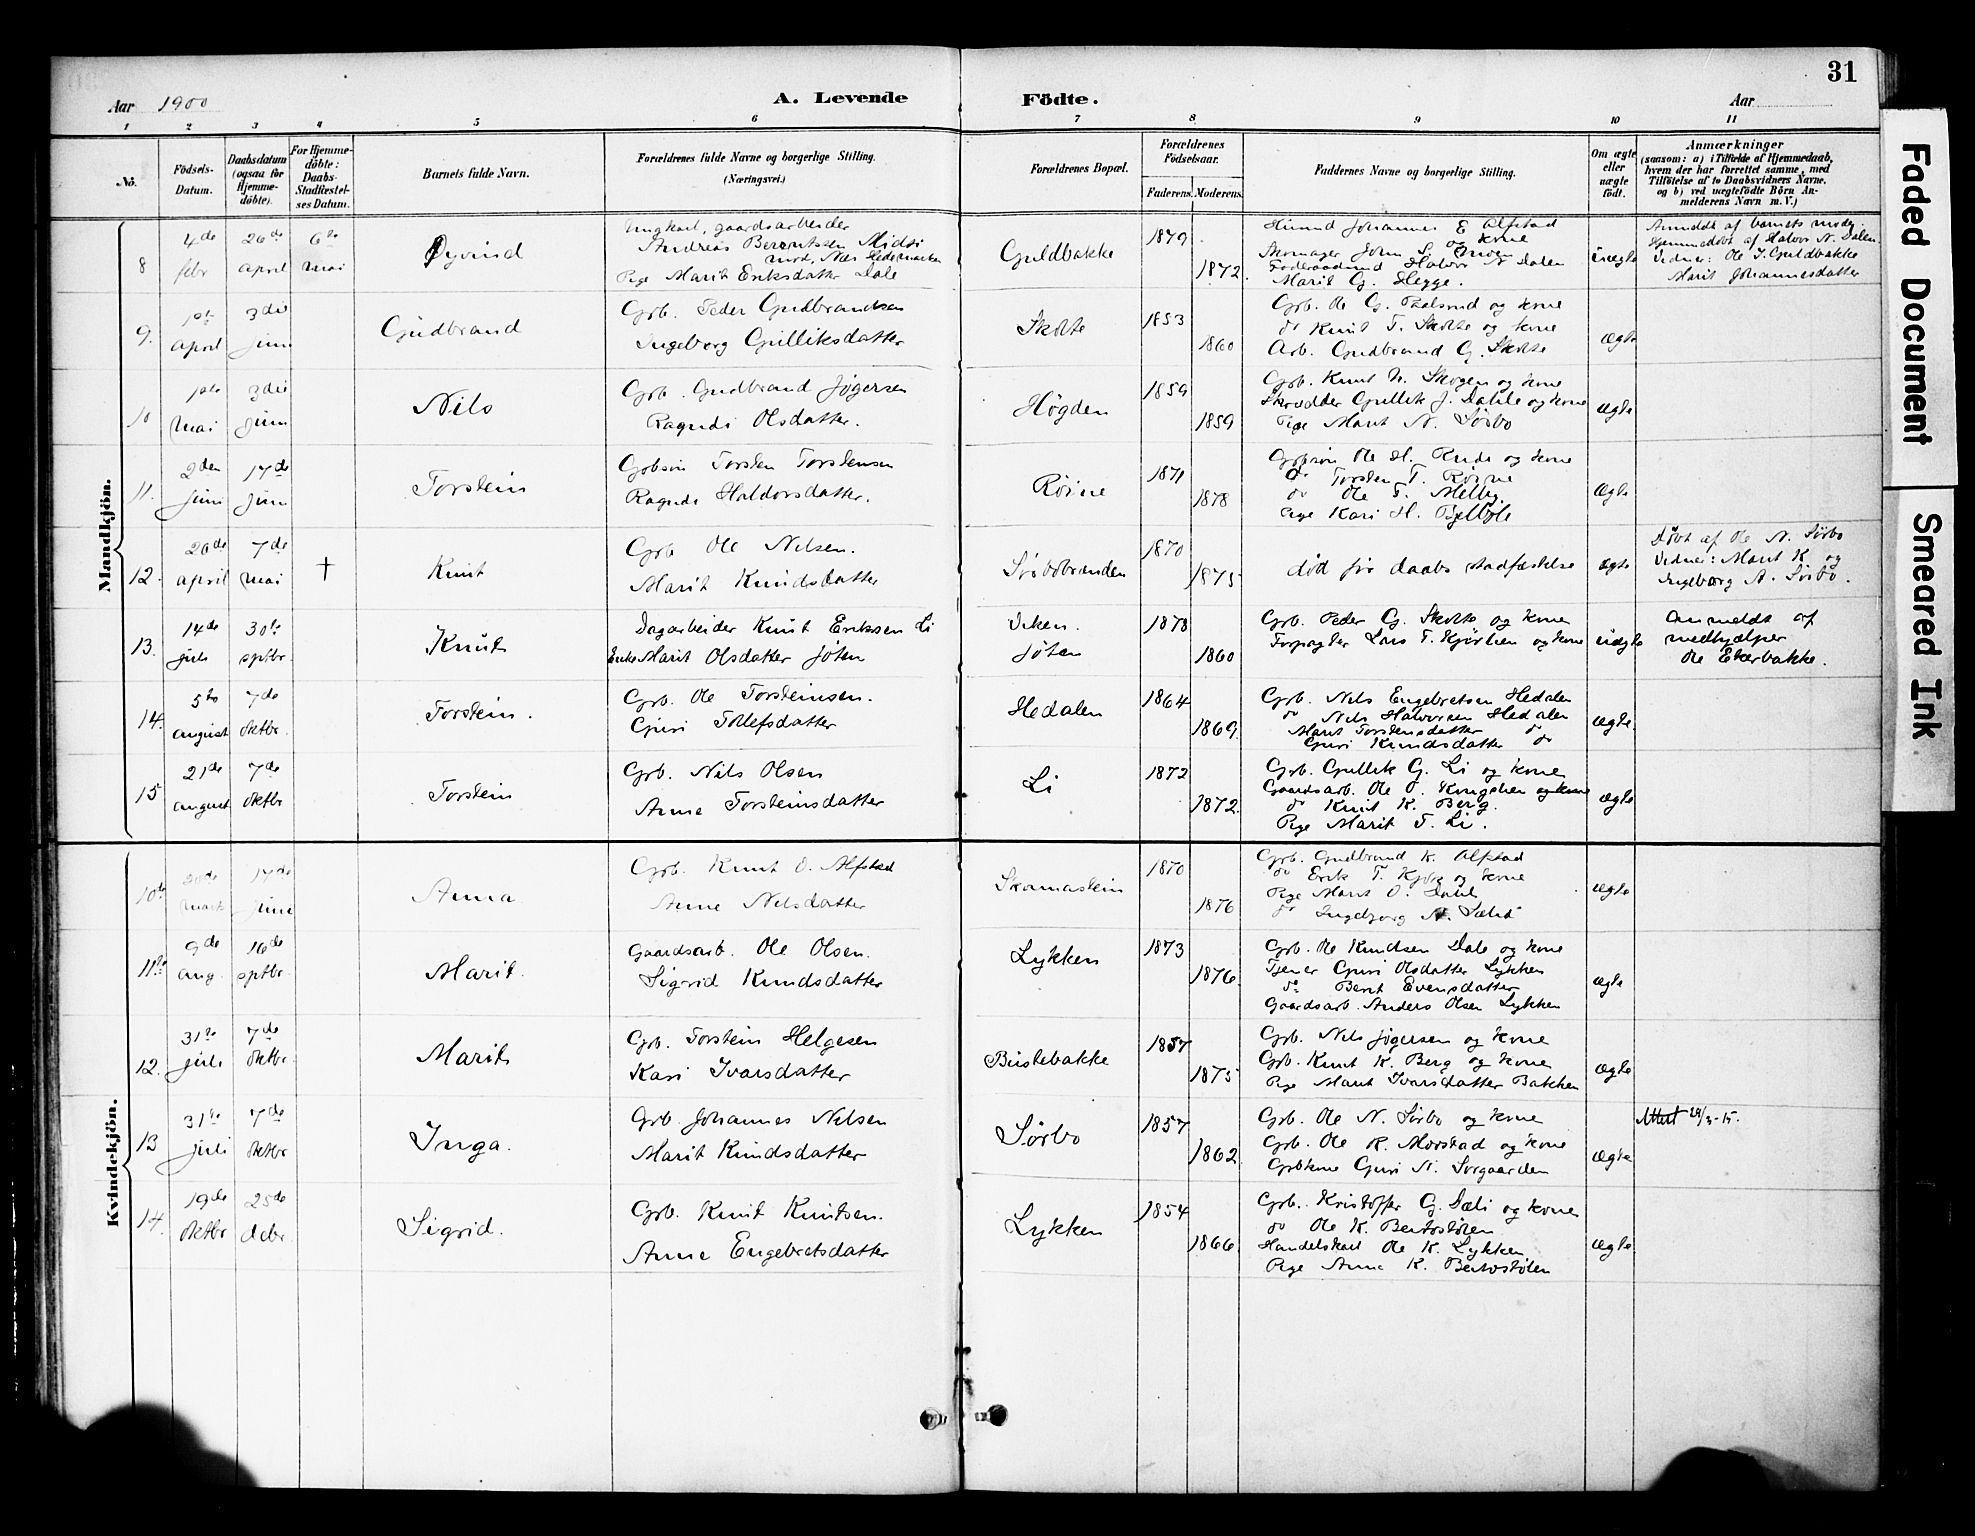 31
Aar 1900
A. Levende Födte.
Aar
1 2 3 4 5 6 7 8 9 10 11
No.
Födsels-Datum.
Daabsdatum (ogsaa for Hjemme-döbte).
For Hjemme-döbte: Daabs-Stadfæstel-ses Datum.
Barnets fulde Navn.
Forældrenes fulde Navne og borgerlige Stilling. (Næringsvei.)
Forældrenes Bopæl.
Forældrenes Födselsaar.
Faderens. Moderens.
Faddernes Navne og borgerlige Stilling.
Om ægte eller uægte födt.
Anmærkninger
(saasom: a) i Tilfælde af Hjemmedaab, hvem der har forrettet samme, med Tilföielse af to Daabsvidners Navne, og b) ved uægtefödte Börn An-melderens Navn m. V.)
Mandkjön.
8 4de febr 26de april 6te mai
Øyvind
Ungkarl, gaardsarbeider
Andreas Berentsen
Pige Marit Eriksdatter Dale
Guldbakke
1879 1872
Johannes E Alfstad og kone
Skomager John
Halvor N Dalen
Marit G. Hegge.
uægte
Anmeldt af barnets moder
Hjemmedøbt af Halvor N. Dalen.
Vidner: Ole J. Guldbakke
Marit Johannesdatter
9. 1ste april 3die juni
Gudbrand
Grb. Peder Gudbrandsen
Ingeborg Gulliksdatter
Skolte
1853 1860
Grb. Ole G. og kone
do Knut T. Skolte og kone
Arb. Gudbrand G. Skolte
ægte
10 1ste mai 3die juni
Nils
Grb. Gudbrand Jøgersen
Ragndi Olsdatter.
Høgden
1859 1859
Grb. Knut N. Skogen og kone
Skrædder Gullik J. Dahle og kone
Pige Marit N. Sørbo
ægte
11. 2den juni 17de juni
Torstein
Grbsøn Torsten Torstensen
Ragndi Haldorsdatter.
Røine
1871 1878
Grbsøn Ole H. Rude og kone
do Torsten T. Røine
do Ole T. Melby.
Pige Kari H. Bjelbøle
ægte
12. 26de april 7de mai †
Knut
Grb Ole Nilsen.
Marit Knudsdatter
Sørbobraaden
1870 1875
død før daabs stadfæstelse
ægte
Døbt af Ole N. Sørbo
Vidner: Marit K og
Ingeborg A. Sørbo.
13. 14de juli 30te sptbr.
Knut
Dagarbeider Knut Eriksen Li
Enke Marit Olsdatter Jøten
Viken.
Jøten
1878 1860
Grb. Peder G. Skolte og kone
Forpagter Lars T. og kone
uægte
Anmeldt af
medhjelper
Ole Ekerbakke.
14. 5te august 7de oktbr.
Torstein.
Grb. Ole Torsteinsen.
Guri Tollefsdatter
Hedalen
1864 1869.
Grb. Nils Engebretsen Hedalen
do Nils Halvorsen Hedalen
Marit Torstensdatter do
Guri Knudsdatter do
ægte.
15 21de august 7de oktbr
Torstein
Grb. Nils Olsen
Anne Torsteinsdatter
Li
1872 1872.
Grb. Gullik G. Li og kone
Gaardsarb. Ole O. og kone
do Knut K. Berg.
Pige Marit T. Li.
ægte
Kvindekjön.
10de 20de marts 17de juni
Anna
Grb. Knut O. Alfstad
Anne Nilsdatter
Skamastein
1870 1876
Grb. Gudbrand K. Alfstad
do Erik T. Kjøk og kone
Pige Marit O. Dahl
do Ingeborg N.
ægte
11te 9de aug. 16de sptbr.
Marit.
Gaardsarb. Ole Olsen.
Sigrid Knudsdatter
Lykken
1873 1876.
Grb. Ole Knudsen Dale og kone
Tjener Guri Olsdatter Lykken
do Berit Evensdatter
Gaardsarb. Anders Olsen Lykken
ægte
12. 31te juli 7de oktbr
Marit
Grb. Torstein Helgesen
Kari Ivarsdatter
Bustebakke
1857 1875
Grb. Nils Jøgersen og kone
Grb. Knut K. Berg og kone
Pige Marit Ivarsdatter Bakken
ægte
13 31te juli 7de oktbr
Inga.
Grb. Johannes Nilsen
Marit Knudsdatter
Sørbo
1857 1862
Grb. Ole N. Sørbo og kone
Grb. Ole K. Morstad og kone
Grbkone Guri N. Sorgaarden
ægte
Attest
14. 19de oktbr 25de debr
Sigrid.
Grb. Knut Knutsen.
Anne Engebretsdatter
Lykken
1854 1866
Grb. Kristoffer G. Dæli og kone
do Ole K. Bertostølen
Handelskarl Ole K. Lykken
Pige Anne K. Bertostølen
ægte
Faded Document
Smeared Ink